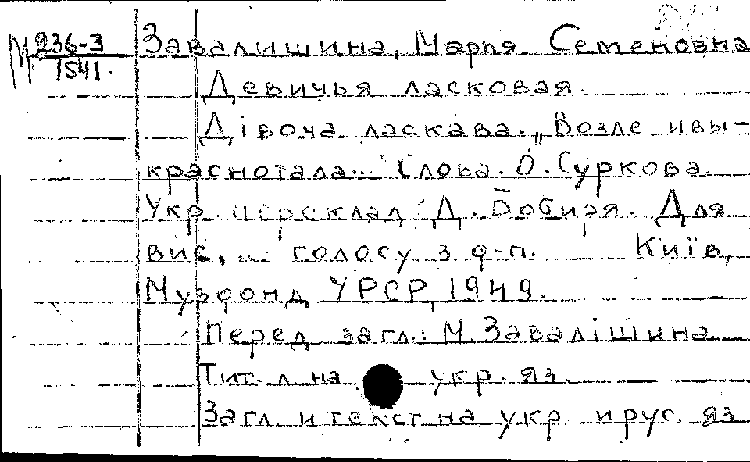 М 236-3
1541.
Завалишина, Мария Семеновна
Девичья ласковая.
Дівоча ласкава. „Возле ивы-
краснотала..." Слова О. Суркова.
Укр. переклад Д. Бобиря. Для
вис. голосу з ф-п. Київ,
Музфонд УРСР, 1949.
Перед загл.: М. Завалішина
Тит. л. на укр. яз.
Загл. и текст на укр. и рус. яз